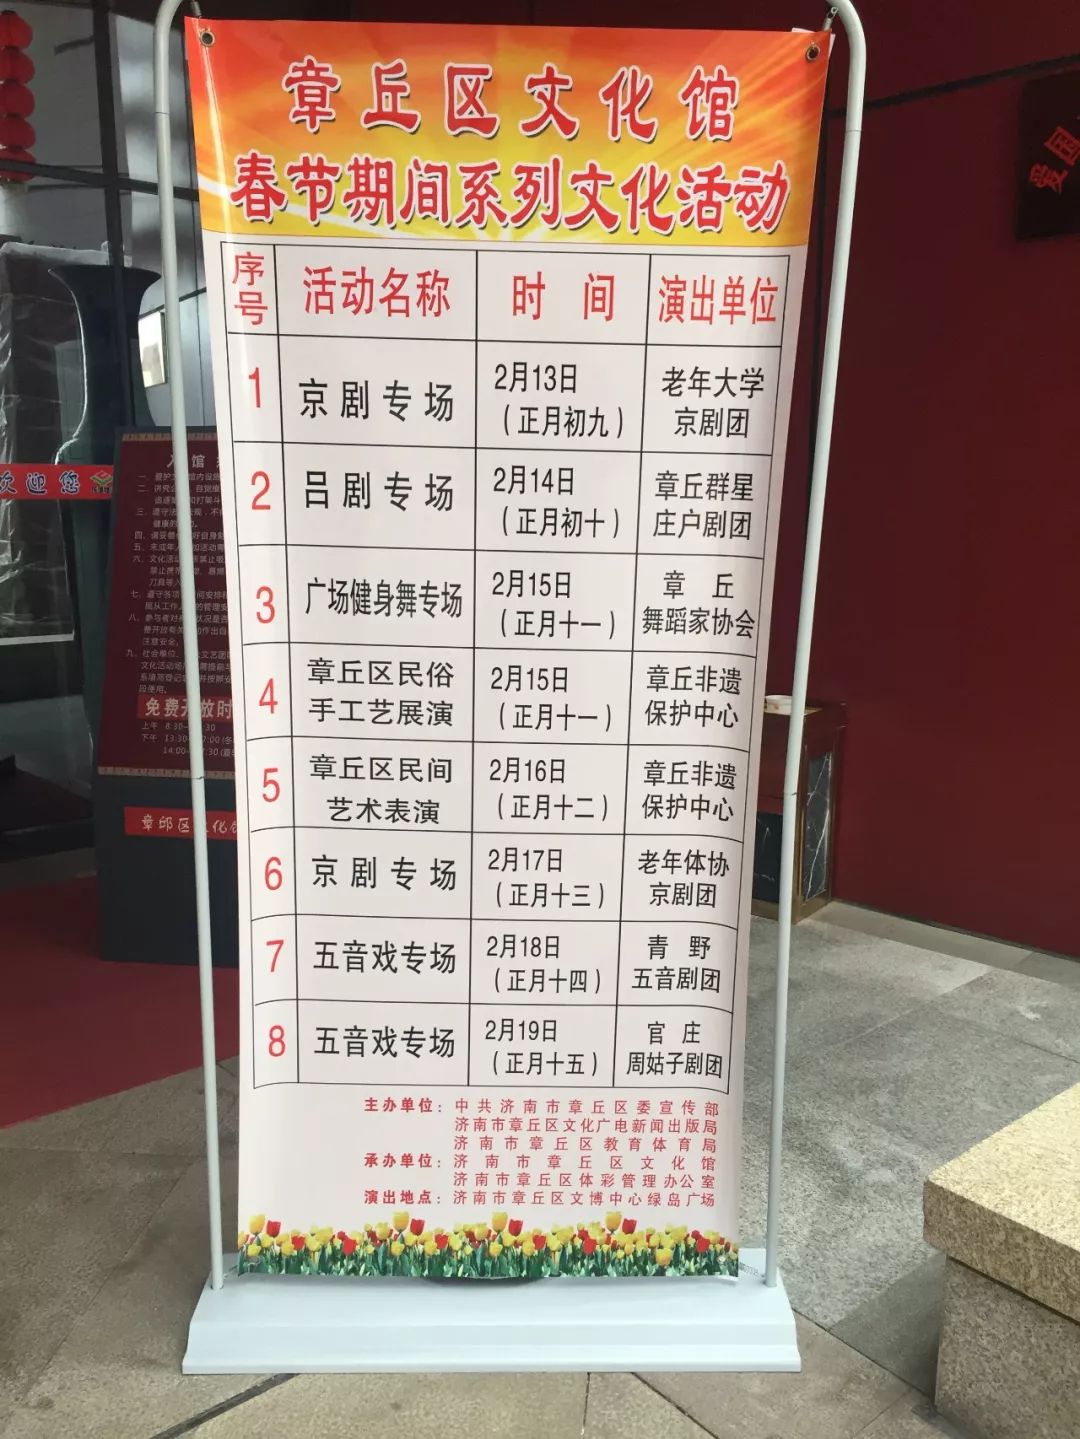 章丘区文化馆
春节期间系列文化活动
序号 活动名称 时间 演出单位
1 京剧专场 2月13日（正月初九） 老年大学京剧团
2 吕剧专场 2月14日（正月初十） 章丘群星庄户剧团
3 广场健身舞专场 2月15日（正月十一） 章丘舞蹈家协会
4 章丘区民俗手工艺展演 2月15日（正月十一） 章丘非遗保护中心
5 章丘区民间艺术表演 2月16日（正月十二） 章丘非遗保护中心
6 京剧专场 2月17日（正月十三） 老年体协京剧团
7 五音戏专场 2月18日（正月十四） 青野五音剧团
8 五音戏专场 2月19日（正月十五） 官庄周姑子剧团
主办单位：中共济南市章丘区委宣传部
济南市章丘区文化广电新闻出版局
济南市章丘区教育体育局
承办单位：济南市章丘区文化馆
济南市章丘区体彩管理办公室
演出地点：济南市章丘区文博中心绿岛广场
欢迎您
入馆
免费开放时
章邱区文化
爱国